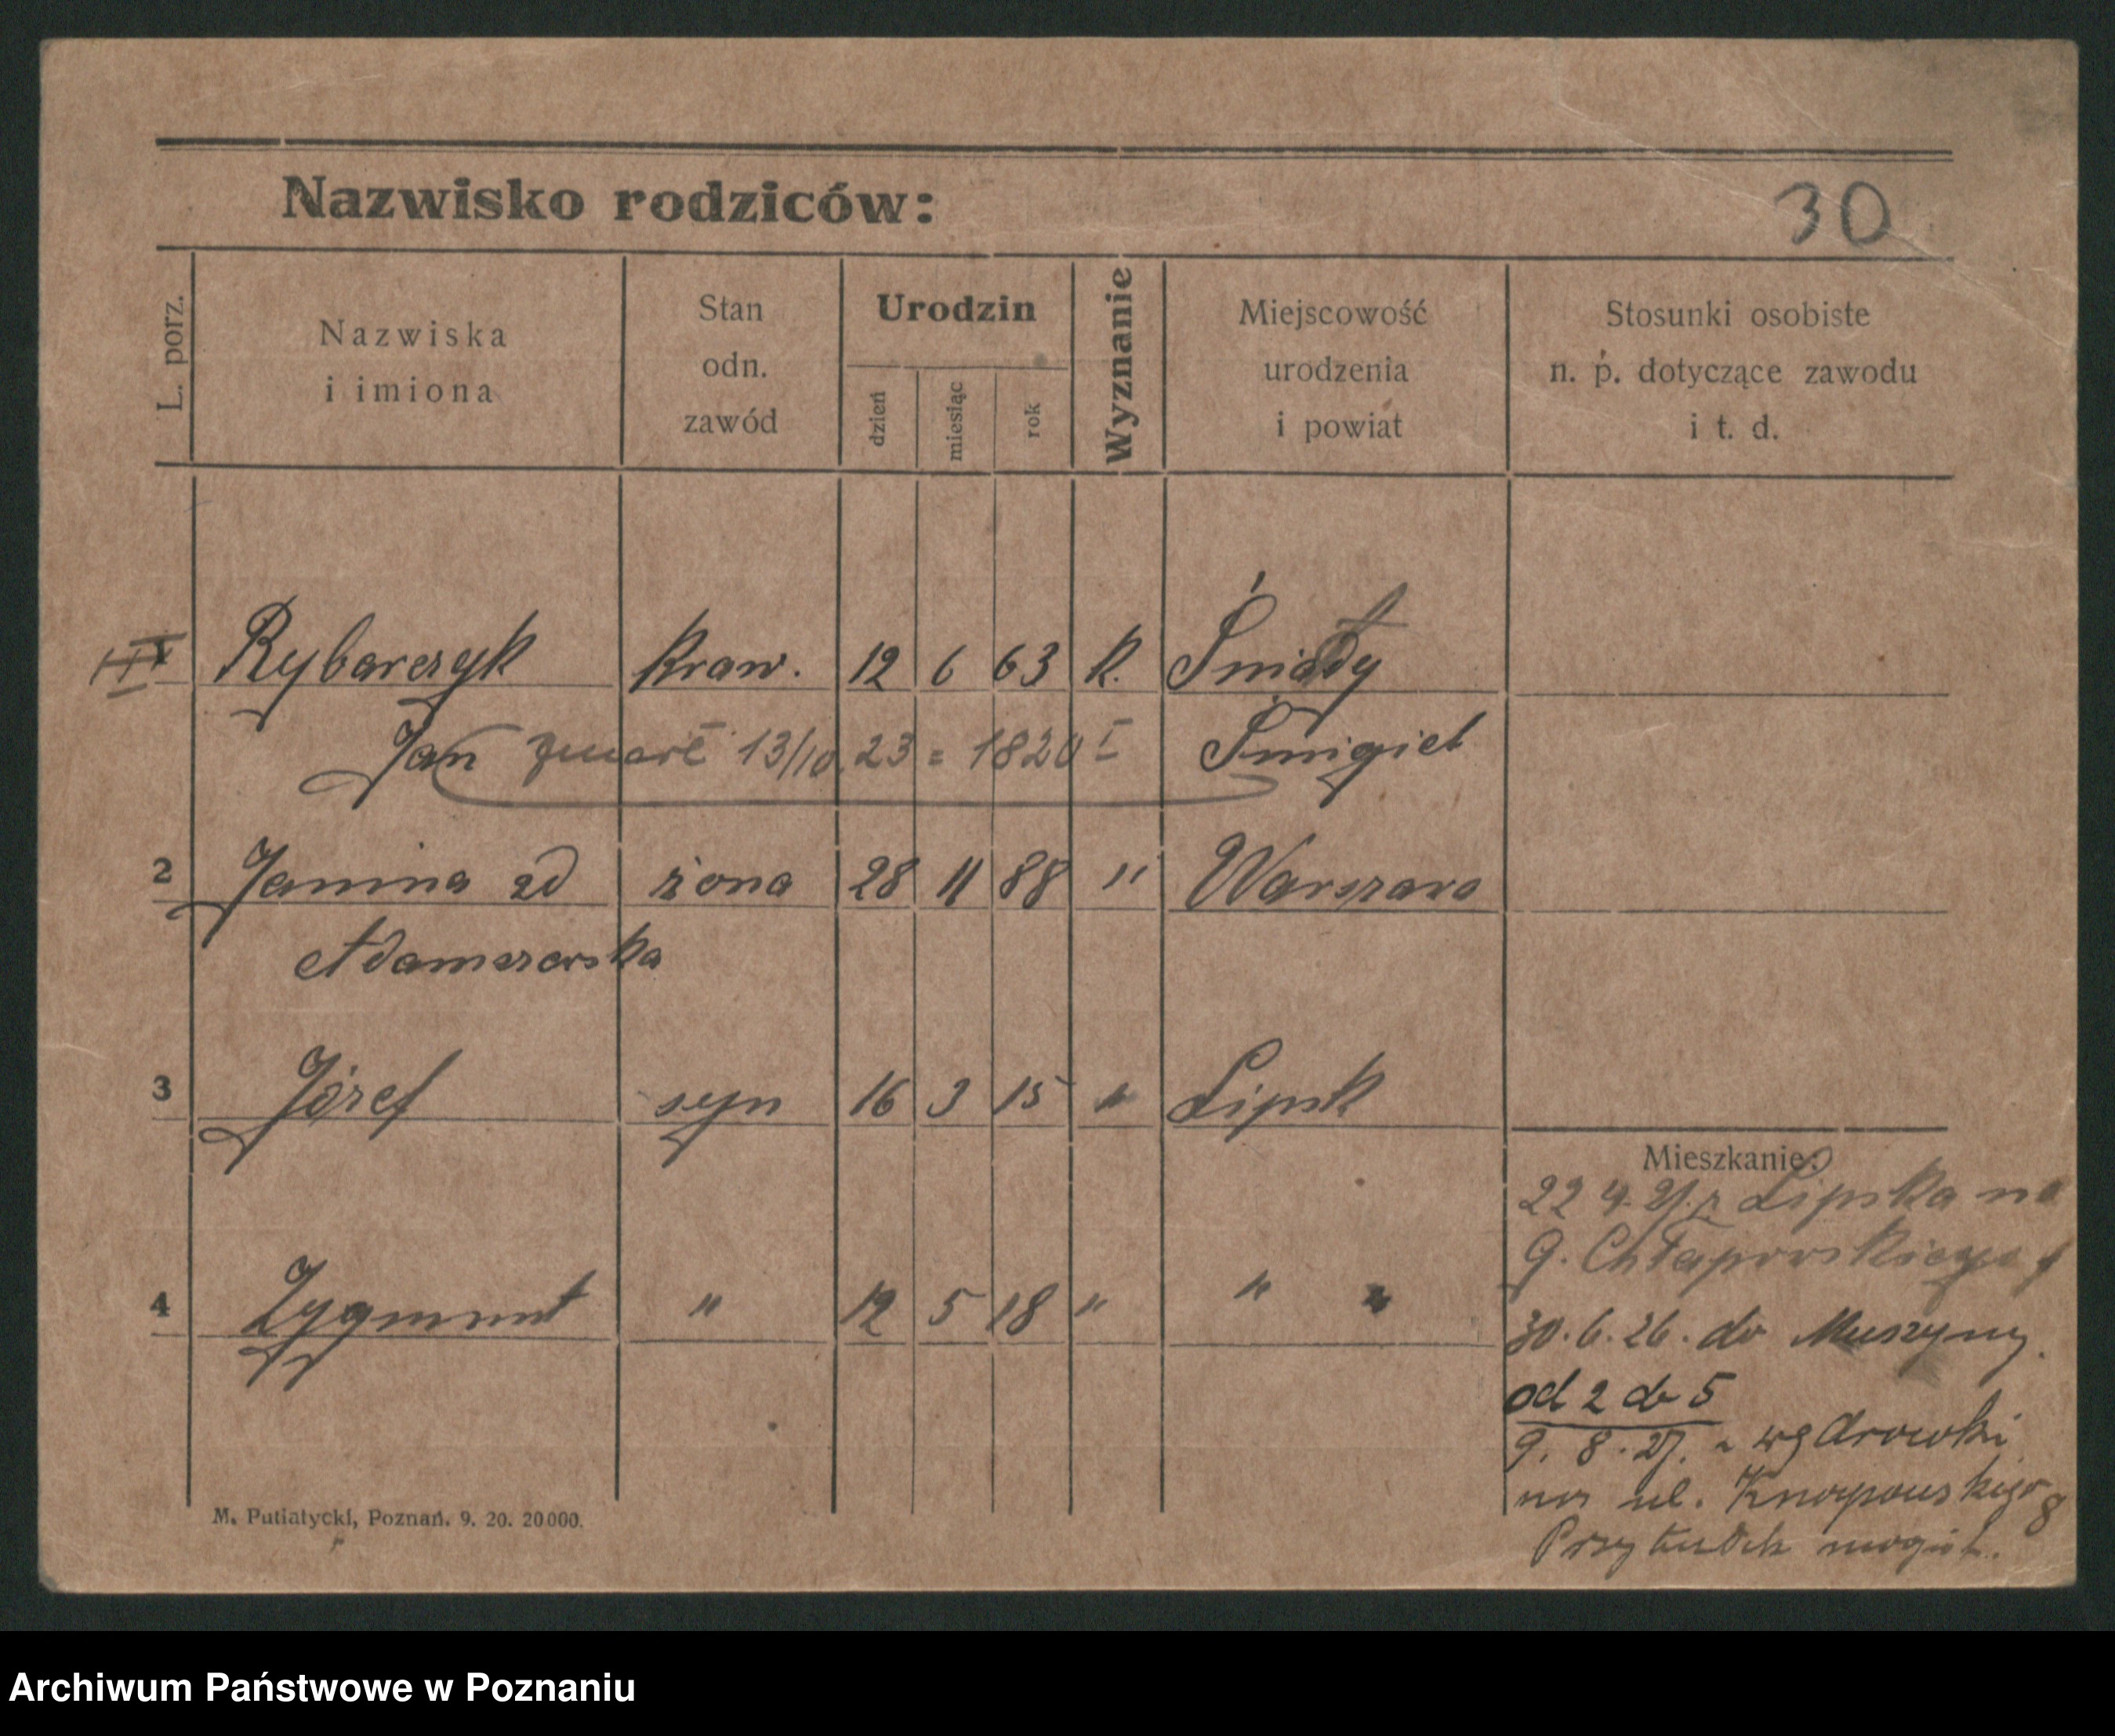 Nazwisko rodziców:
30
L. porz.
Nazwiska
i imiona
Stan
odn.
zawód
Urodzin
dzień
miesiąc
rok
Wyznanie
Miejscowość
urodzenia
i powiat
Stosunki osobiste
n. p. dotyczące zawodu
i t. d.
Rybarczyk kraw. 12 6 63 k. Śniaty
Jan zmarł 13/10. 23 = 1820 I Śmigiel
2 Janina zd żona 28 11 88 " Warszawa
Adamszewska
3 Józef syn 16 3 15 " Lipsk
4 Zygmunt " 12 5 18 " " "
Mieszkanie:
22 4. 21. z Lipska na
G. Chłapowskiego
30. 6. 26. do Muszyny.
od 2 do 5
9. 8. 27. z wędrówki
na ul. Knapowskiego 8
Przytułek
M. Putiatycki, Poznań. 9. 20. 20000.
Archiwum Państwowe w Poznaniu